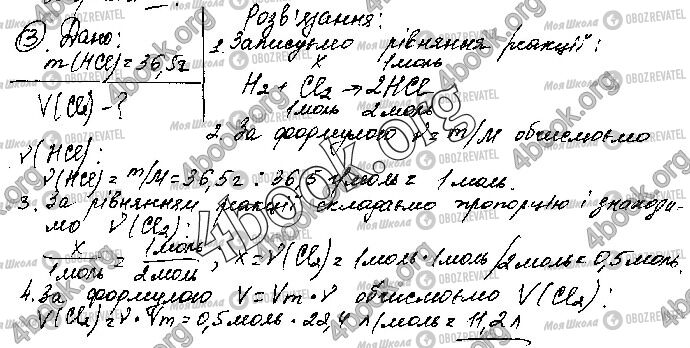 ③ Дано:
m(HCl)=36,5г
V(Cl₂) - ?
Розв'язання:
1. Записуємо рівняння реакції:
x 1моль
H₂ + Cl₂ → 2HCl
1моль 2моль
2. За формулою ν = m/M обчислюємо
ν(HCl):
ν(HCl) = m/M = 36,5г : 36,5 г/моль = 1 моль.
3. За рівнянням реакції складаємо пропорцію і знаходи-
мо ν(Cl₂):
x/1моль = 1моль/2моль, x = ν(Cl₂) = 1моль · 1моль /2моль = 0,5моль.
4. За формулою V = Vm · ν обчислюємо V(Cl₂):
V(Cl₂) = ν · Vm = 0,5моль · 22,4 л/моль = 11,2 л
4book.org
Моя Школа OBOZREVATEL